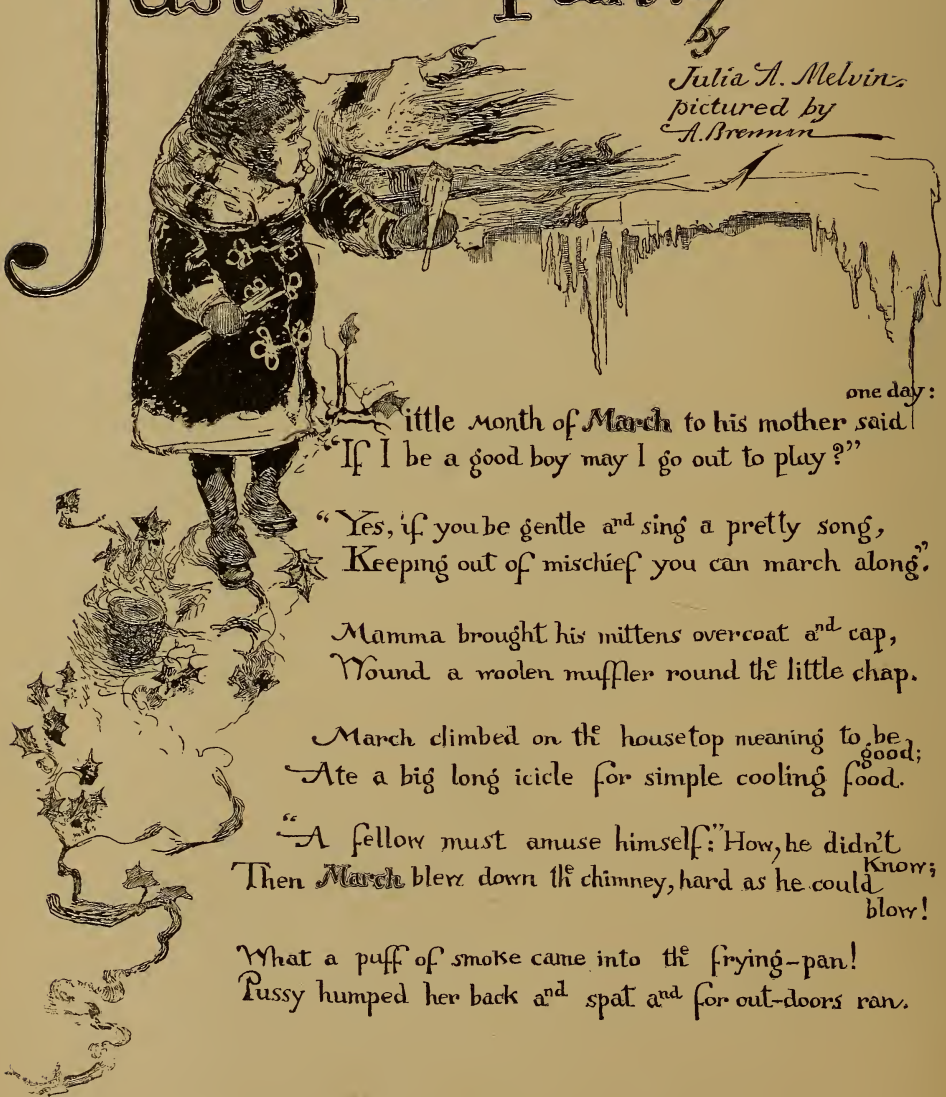 Just
by
Julia A. Melvin.
pictured by
A. Brennan
Little month of March to his mother said one day:
"If I be a good boy may I go out to play?"
"Yes, if you be gentle and sing a pretty song,
Keeping out of mischief you can march along."
Mamma brought his mittens overcoat and cap,
Wound a woolen muffler round the little chap.
March climbed on the housetop meaning to be good;
Ate a big long icicle for simple cooling food.
"A fellow must amuse himself:" How, he didn't Know;
Then March blew down the chimney, hard as he could blow!
What a puff of smoke came into the frying-pan!
Pussy humped her back and spat and for out-doors ran.